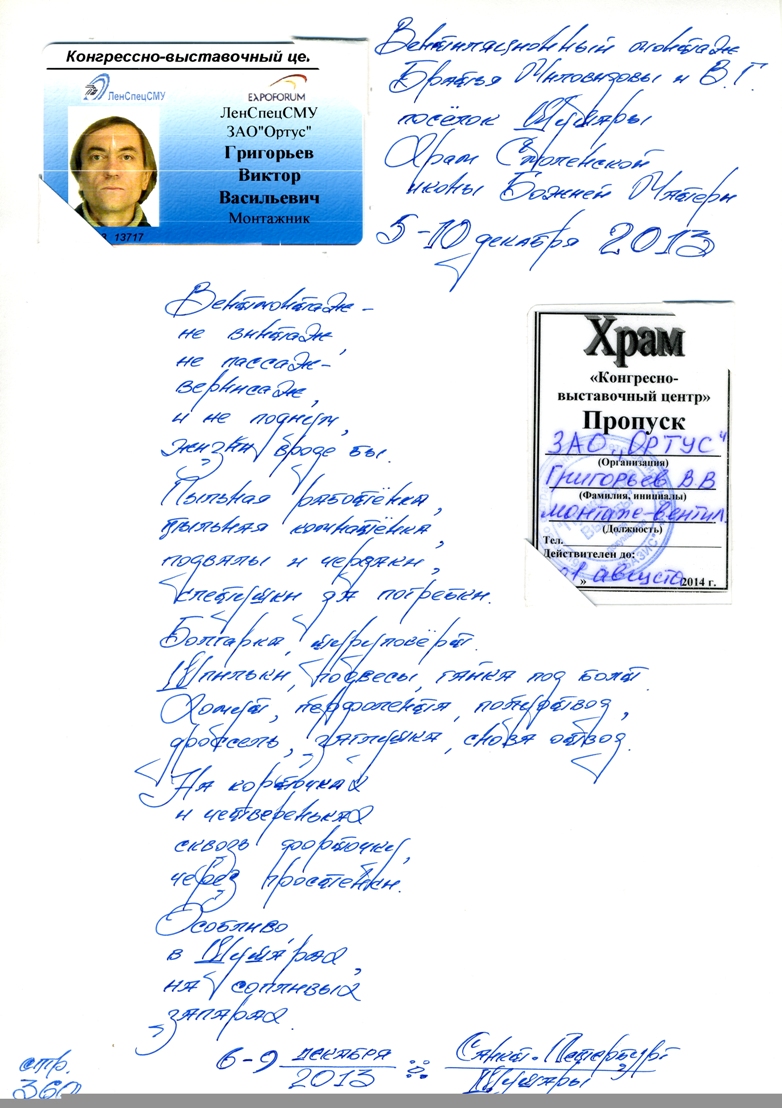 Конгрессно-выставочный це.
ЛенСпецСМУ
EXPOFORUM
ЛенСпецСМУ
ЗАО"Ортус"
Григорьев
Виктор
Васильевич
Монтажник
13717
Вентиляционный монтаж
Братья Миловидовы и В.Г.
посёлок Шушары
Храм Смоленской
иконы Божией Матери
5-10 декабря 2013
Вентмонтаж –
не винтаж,
не пассаж –
вернисаж,
и не поднум,
жизни вроде бы.
Пыльная работёнка,
пыльная комнатёнка,
подвалы и чердаки,
клетушки да погребки.
Болгарка, шуруповёрт.
Шпильки, подвесы, гайка под болт.
Хомут, перфолента, полуотвод,
дроссель, заглушка, снова отвод.
На корточках
и четвереньках
сквозь форточку,
через простенки.
Особливо
в Шушарах,
на сопливых
запарах.
6-9 декабря 2013
Санкт-Петербург
Шушары
стр.
360
Храм
«Конгресно-
выставочный центр»
Пропуск
ЗАО „Ортус"
(Организация)
Григорьев В В
(Фамилия, инициалы)
монтаж-вентил.
(Должность)
Тел.
Действителен до:
» августа 2014 г.